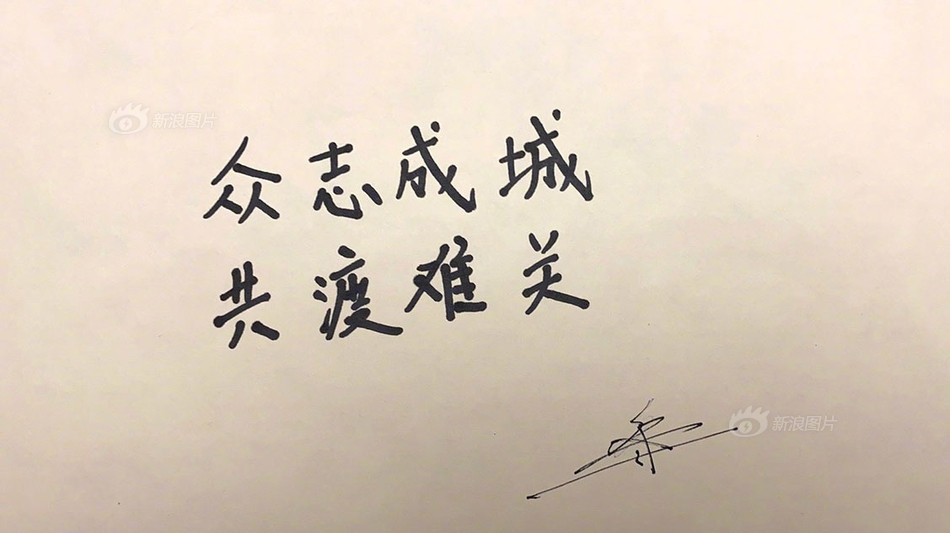 新浪图片
众志成城
共渡难关
新浪图片